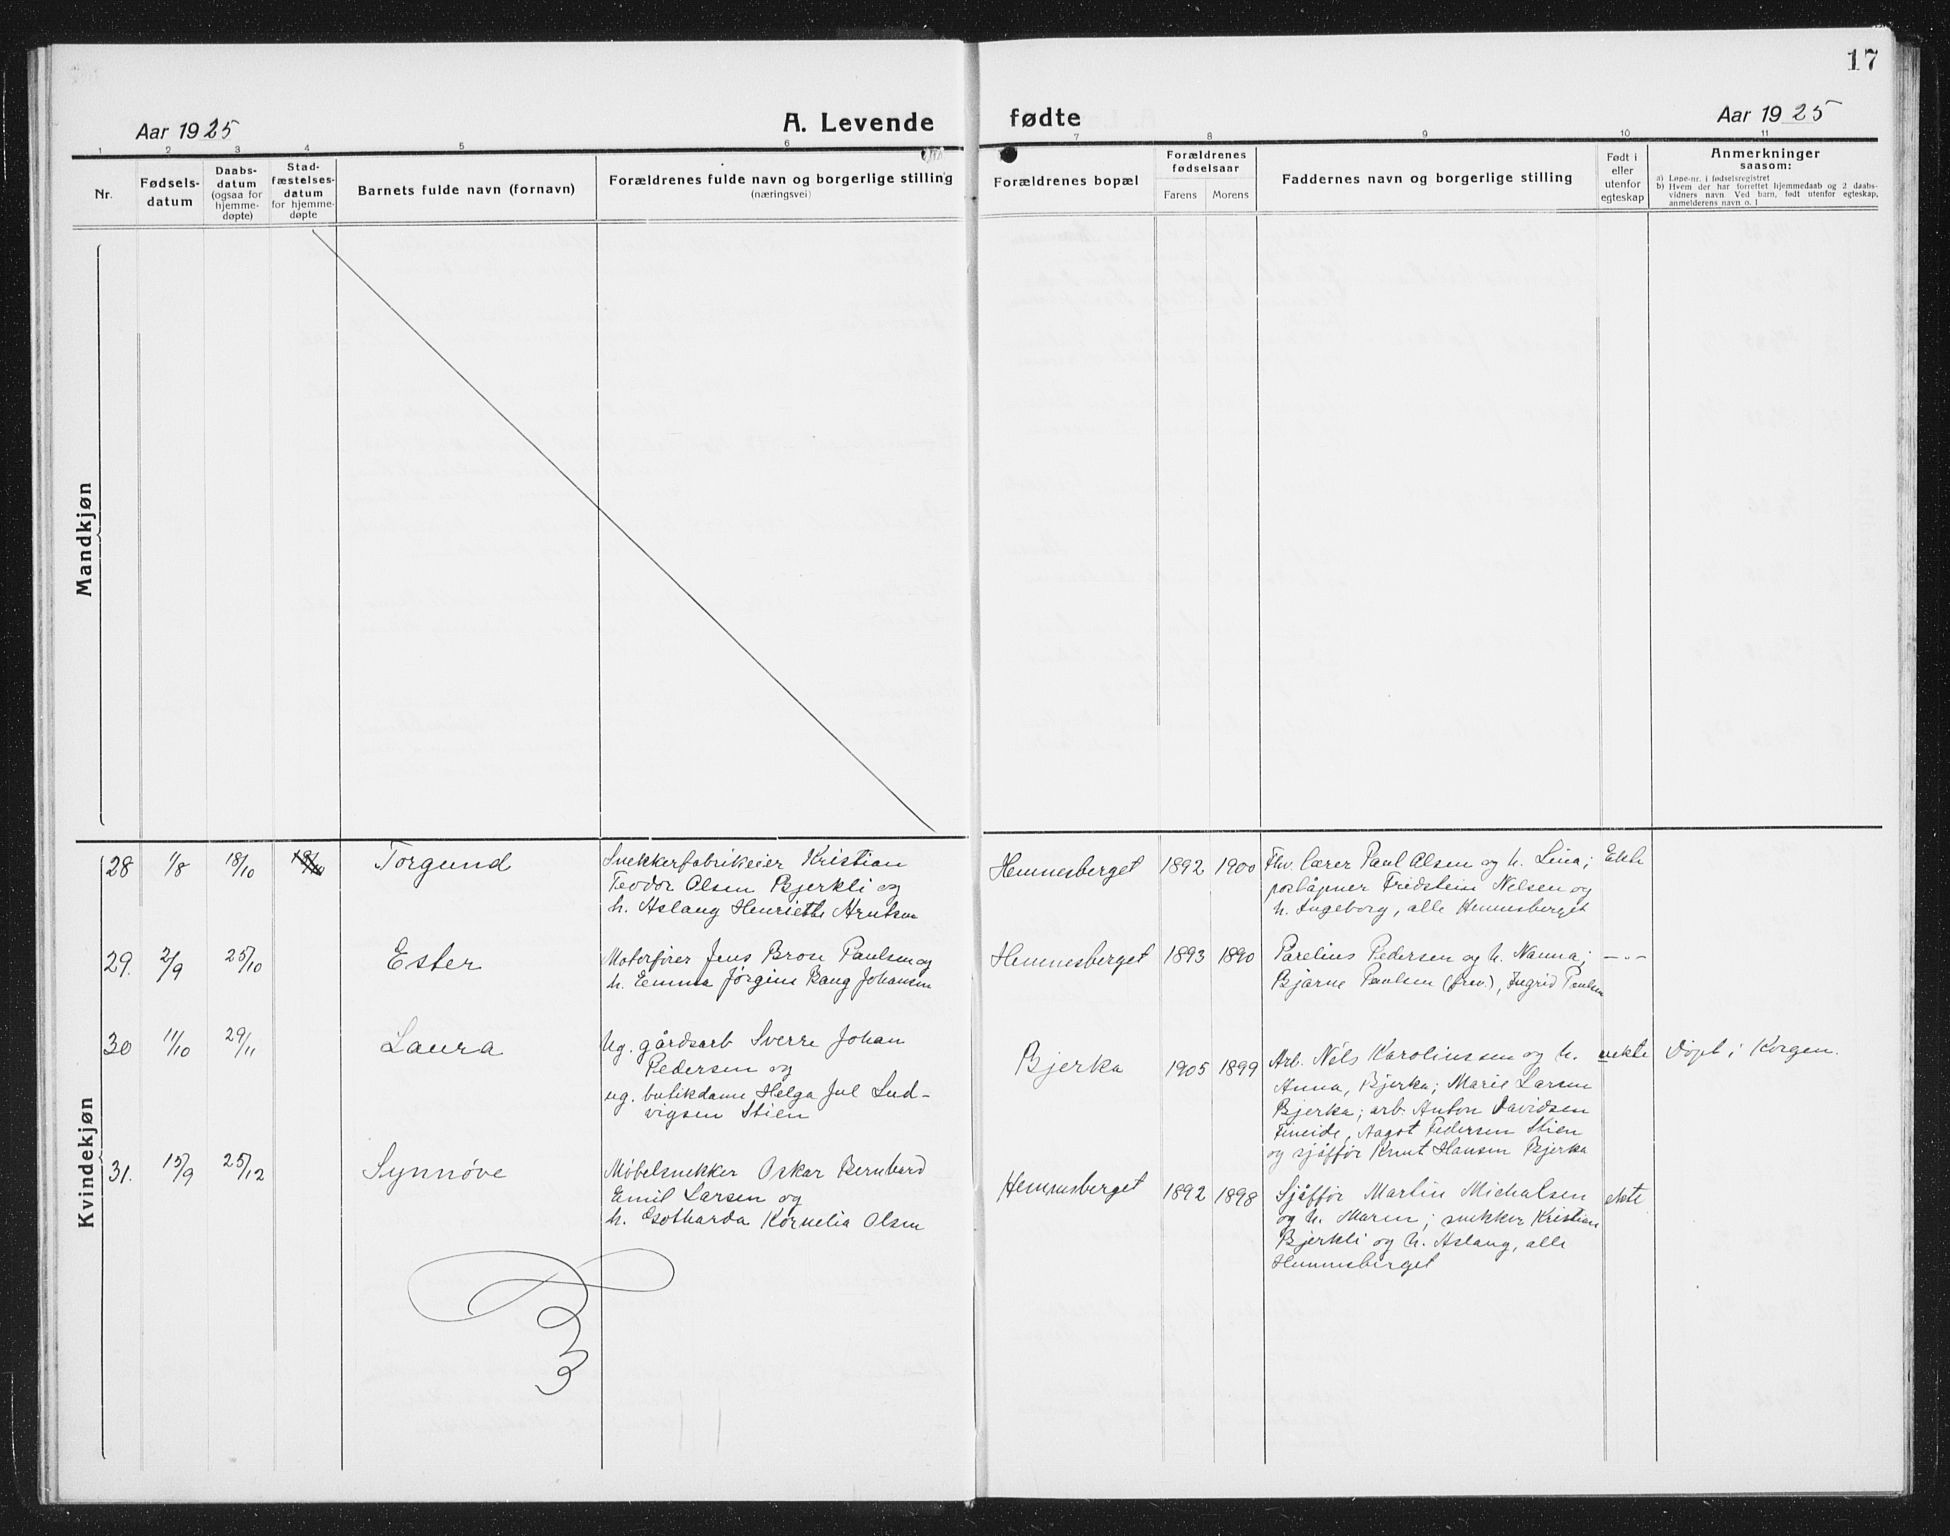 17
Aar 1925
A. Levende fødte
Aar 1925
1 2 3 4 5 6 7 8 9 10 11
Nr.
Fødsels-
datum
Daabs-
datum
(ogsaa for
hjemme-
døpte)
Stad-
fæstelses-
datum
for hjemme-
døpte
Barnets fulde navn (fornavn)
Forældrenes fulde navn og borgerlige stilling
(næringsvei)
Forældrenes bopæl
Forældrenes
fødselsaar
Farens Morens
Faddernes navn og borgerlige stilling
Født i
eller
utenfor
egteskap
Anmerkninger
saasom:
a) Løpe-nr. i fødselsregistret
b) Hvem der har forrettet hjemmedaab og 2 daabs-
vidners navn. Ved barn, født utenfor egteskap,
anmelderens navn o. l
Mandkjøn
Kvindekjøn
28 1/8 18/10 18/10 Torgund
Snekkerfabrikeier Kristian
Teodor Olsen Bjerkli og
h. Aslaug Henriette Arntsen
Hemnesberget 1892 1900
Fhv. lærer Paul Olsen og h. Lina;
poståpner Fridstein Nelsen og
h. Ingeborg, alle Hemnesberget
Ekte
29. 2/9 25/10 Ester
Motorfører Jens Brose Paulsen og
h. Emma Jørgine Bang Johansen
Hemnesberget 1893 1890
Parelius Pedersen og h. Nanna;
Bjarne Paulsen (frav.), Ingrid Paulsen
—〃—
30 11/10 29/11 Laura
Ug. gårdsarb Sverre Johan
Pedersen og
ug. butikdame Helga Jul Lud-
vigsen Stien
Bjerka 1905 1899
Arb. Nils Karolinssen og h.
Anna, Bjerka; Marie Larsen
Bjerka; arb. Anton Davidsen
Fineide, Aagot Pedersen Stien
og sjåffør Knut Hansen Bjerka
uekte
Døpt i Korgen.
31. 15/9 25/12 Synnøve
Møbelsnekker Oskar Bernhard
Emil Larsen og
h. Gotharda Kornelia Olsen
Hemnesberget 1892 1898
Sjåffør Martin Michalsen
og h. Maren; snekker Kristian
Bjerkli og h. Aslaug, alle
Hemnesberget
ekte